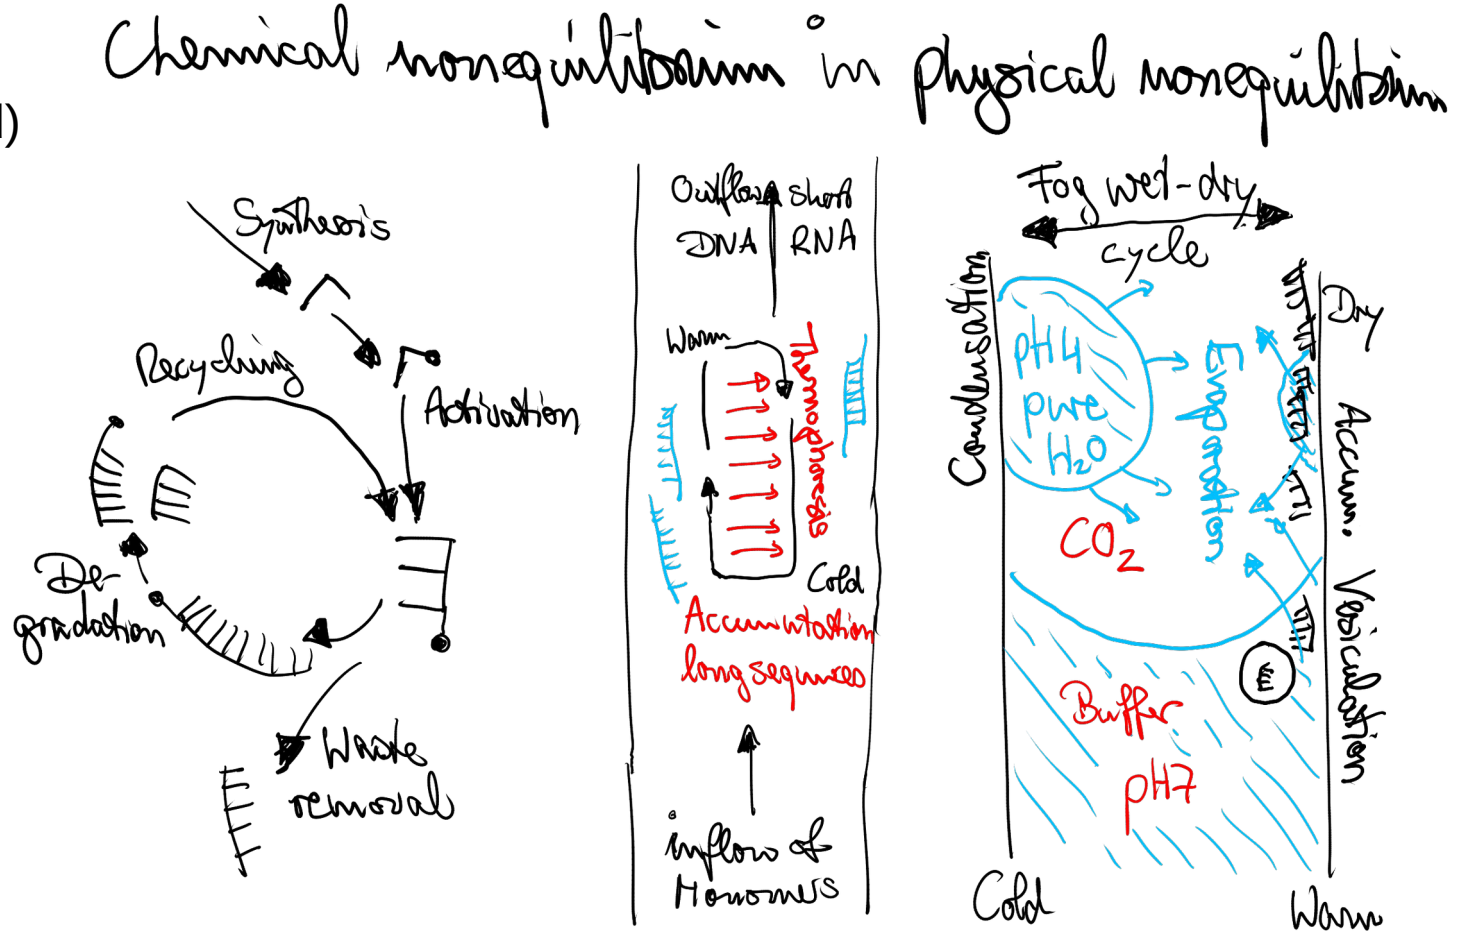 Chemical nonequilibrium in physical nonequilibrium
Synthesis
Recycling
Activation
De-
gradation
Waste
removal
Outflow short
DNA RNA
Warm
Thermophoresis
Cold
Accumulation
long sequnces
inflow of
Monomers
Fog wet-dry
cycle
Condensation
pH4
pure
H2O
Evaporation
CO2
Dry
Accum.
Vesiculation
Buffer
pH7
Cold
Warm